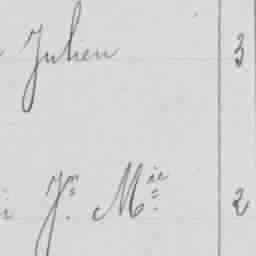 Julien 3
Jn Mie 2